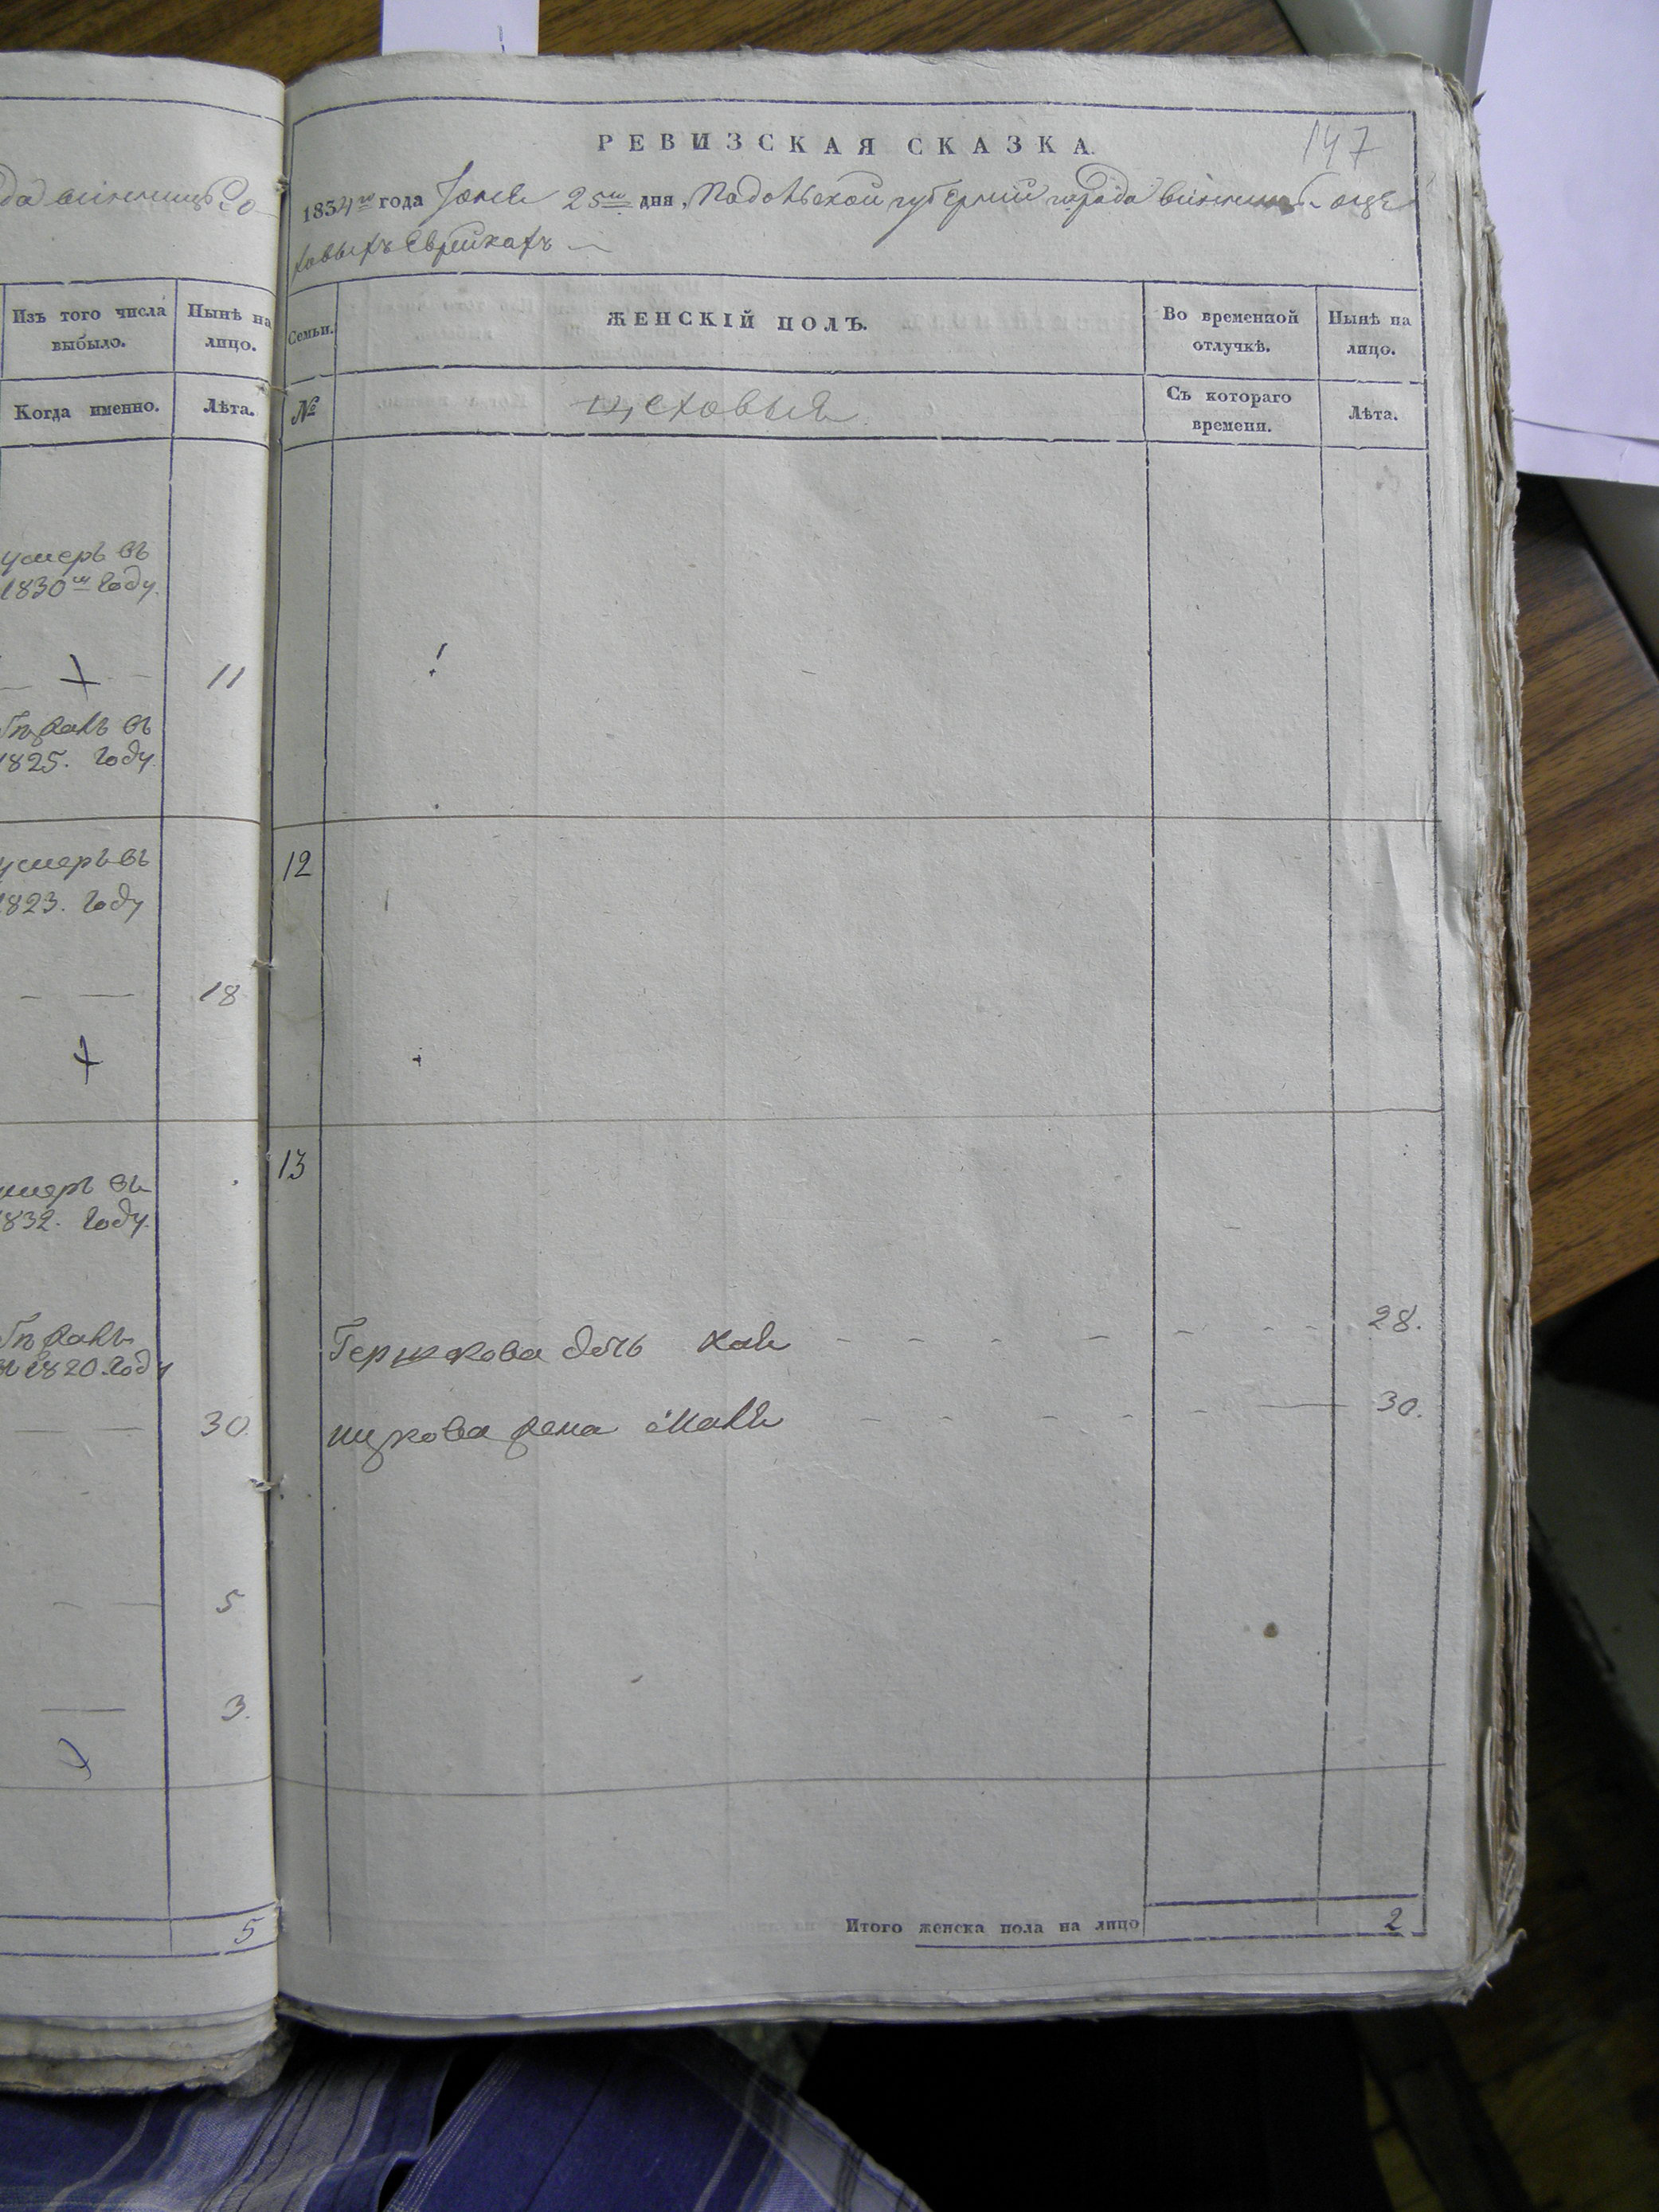 Изъ того числа
выбыло.
Нынѣ на
лицо.
Когда именно.
Лѣта.
умеръ въ
1830 году.
11
въ
1825. году
умеръ въ
1823. году
18
умеръ въ
1832. году.
1820. году
30
5
3.
5
147
РЕВИЗСКАЯ СКАЗКА.
1834го года Июня 25го дня, Подольской губернии города Винницы о цехо
ховыхъ Еврейкахъ
Семьи.
ЖЕНСКІЙ ПОЛЪ.
Во временной
отлучкѣ.
Нынѣ на
лицо.
№
цеховыя
Съ котораго
времени.
Лѣта.
12
13
Гершкова дочь Хая 28.
жена Маля 30.
Итого женска пола на лицо 2